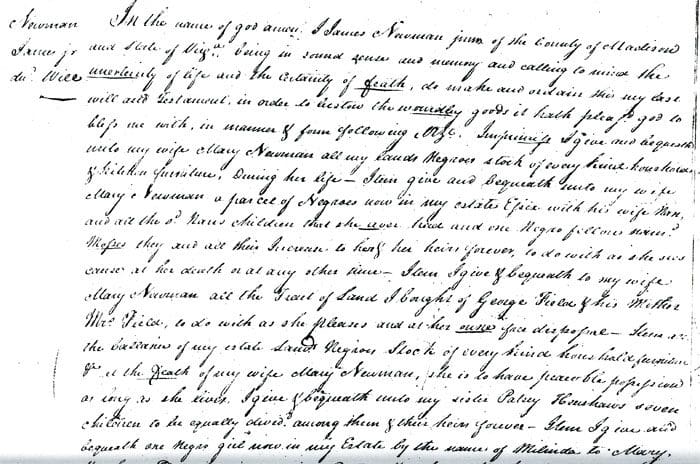 Newman
James jr
du. Will
In the name of god amen I James Newman junr of the County of Madison
and State of Virga. being in sound sense and memory and calling to mind the
uncertenty of life and the certainty of death, do make and ordain this my last
will and Testament, in order to bestow the wourdley goods it hath pleasd god to
bless me with, in manner & form following Viz. Imprimis I give and bequeath
unto my wife Mary Newman all my Lands Negroes stock of every kind household
& kitchen furniture, During her life — Item give and bequeath unto my wife
Mary Newman a parcel of Negroes now in my estate with his wife Nan,
and all the sd. Nans children that she ever had and one Negro fellow namd.
Moses they and all their Increase to her & her heirs forever, to do with as she sees
cause at her death or at any other time — Item I give & bequeath to my wife
Mary Newman all the Tract of Land I bought of George Field & his Mother
Mrs. Field, to do with as she pleases and at her own free disposal — Item
the ballains of my estate Land Negroes Stock of every kind household furniture
& at the Death of my wife Mary Newman, she is to have peaceable possession
as long as she lives, I give & bequeath unto my sister Patsey Henshaws seven
children to be equally dividd. among them & their heirs forever — Item I give and
bequeath one Negro girl now in my Estate by the name of Milinda to Mary